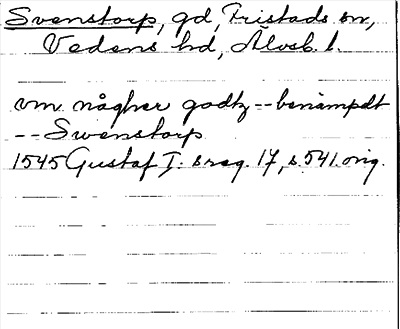 Svenstorp, gd, Fristads sn,
Vedens hd, Älvsb. l.
um någher godtz -- benämpdt
-- Swenstorp
1545 Gustaf I: s reg. 17, s. 541. orig.